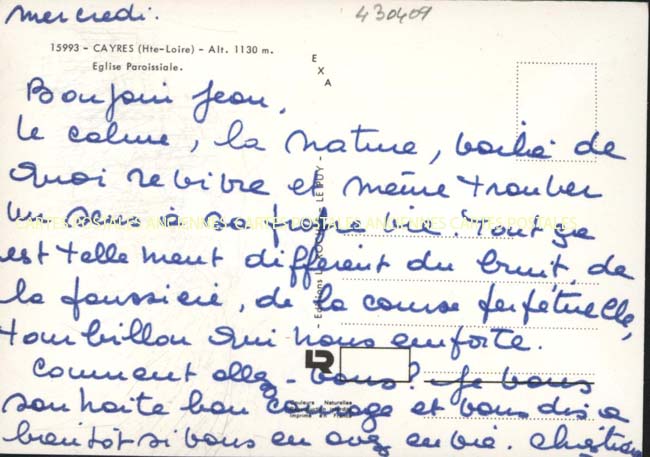 mercredi.
430409
15993 - CAYRES (Hte-Loire) - Alt. 1130 m.
Eglise Paroissiale.
EXA
Bonjour Jean,
le calme, la nature, voilà de
quoi revivre et même trouver
un sens à sa propre vie. Tout ça
CARTES POSTALES ANCIENNES CARTES POSTALES ANCIENNES CARTES POSTALES
est tellement différent du bruit, de
la poussière, de la course perpétuelle,
tourbillon qui nous emporte.
Comment allez-vous? Je vous
souhaite bon courage et vous dis à
bientôt si vous en avez envie. Christian
- Editions LE PUY -
Couleurs Naturelles
Imprimé en France